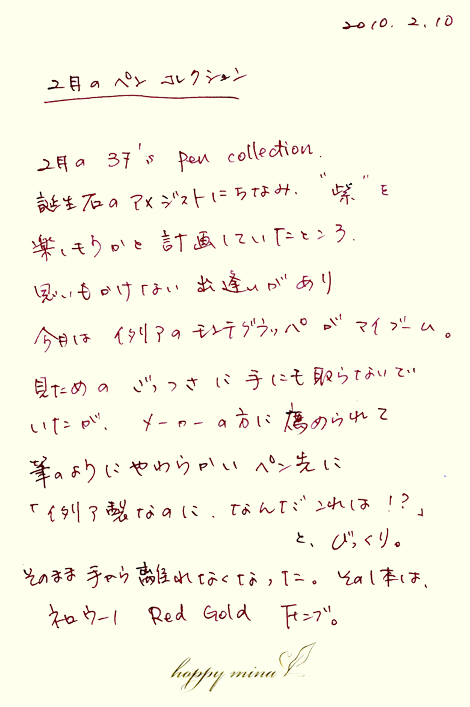 2010. 2. 10
2月の ペン コレクション
2月の 37's pen collection.
誕生石のアメジストにちなみ、"紫"を
楽しもうかと 計画していたところ、
思いもかけない 出逢いがあり
今月は イタリアのモンテグラッパが マイブーム。
見ための ごっつさに 手にも取らないで
いたが、 メーカーの方に 薦められて
筆のように やわらかい ペン先に
「イタリア製なのに、なんだこれは!?」
と、びっくり。
そのまま 手から離れなくなった。その1本は、
ネロウーノ Red Gold Fニブ。
happy mina